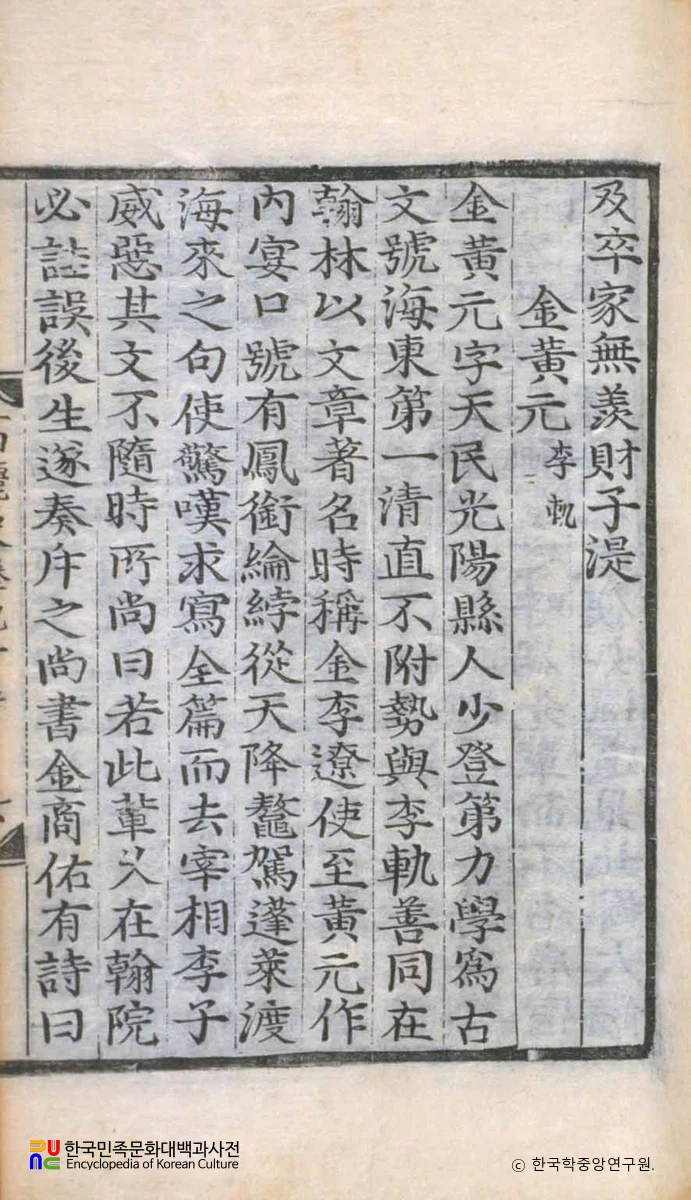 及卒家無羨財子湜
金黃元 李軌
金黃元字天民光陽縣人少登第力學爲古
文號海東第一清直不附勢與李軌善同在
翰林以文章著名時稱金李遼使至黃元作
內宴口號有鳳銜綸綍從天降鼇駕蓬萊渡
海來之句使驚嘆求寫全篇而去宰相李子
威惡其文不隨時所尚曰若此輩久在翰院
必詿誤後生遂奏斥之尚書金商佑有詩曰
한국민족문화대백과사전
Encyclopedia of Korean Culture
© 한국학중앙연구원.